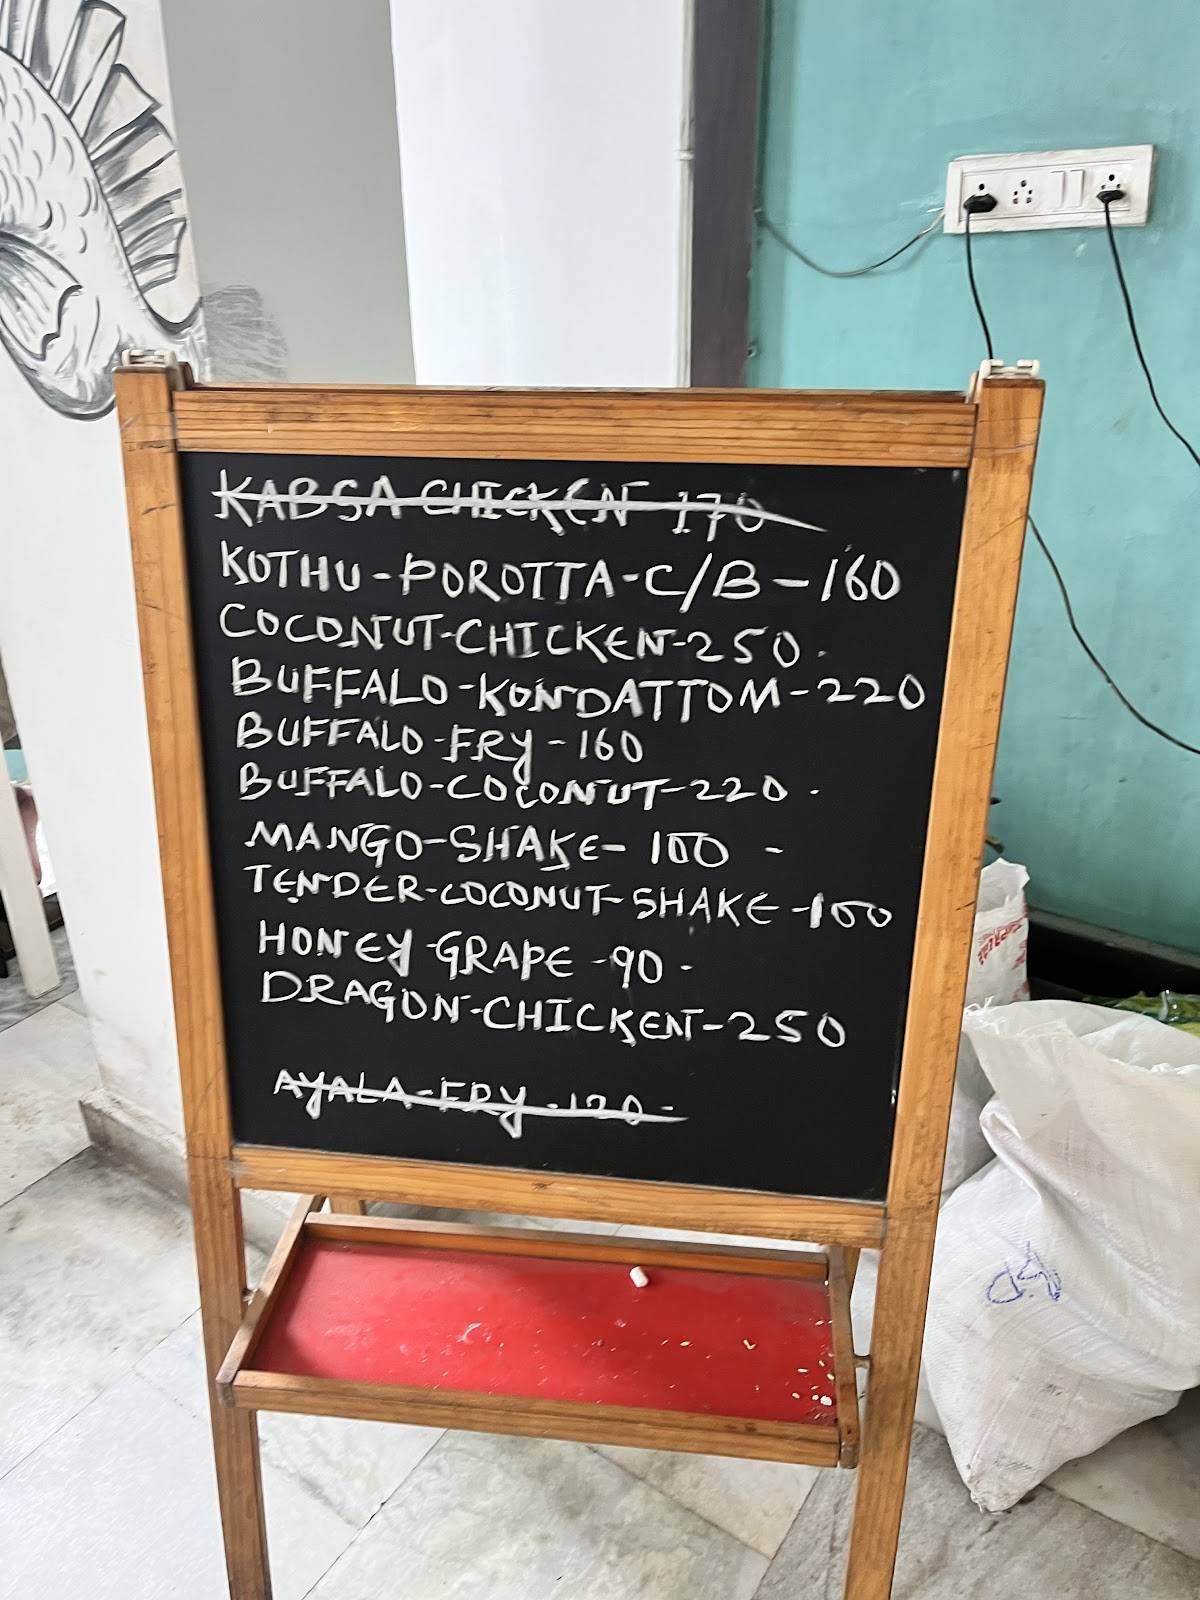 KABSA CHICKEN 170
KOTHU-POROTTA-C/B-160
COCONUT-CHICKEN-250.
BUFFALO-KONDATTOM-220
BUFFALO-FRY-160
BUFFALO-COCONUT-220.
MANGO-SHAKE-100 -
TENDER-COCONUT-SHAKE-100
HONEY-GRAPE-90-
DRAGON-CHICKEN-250
AYALA-FRY-120-